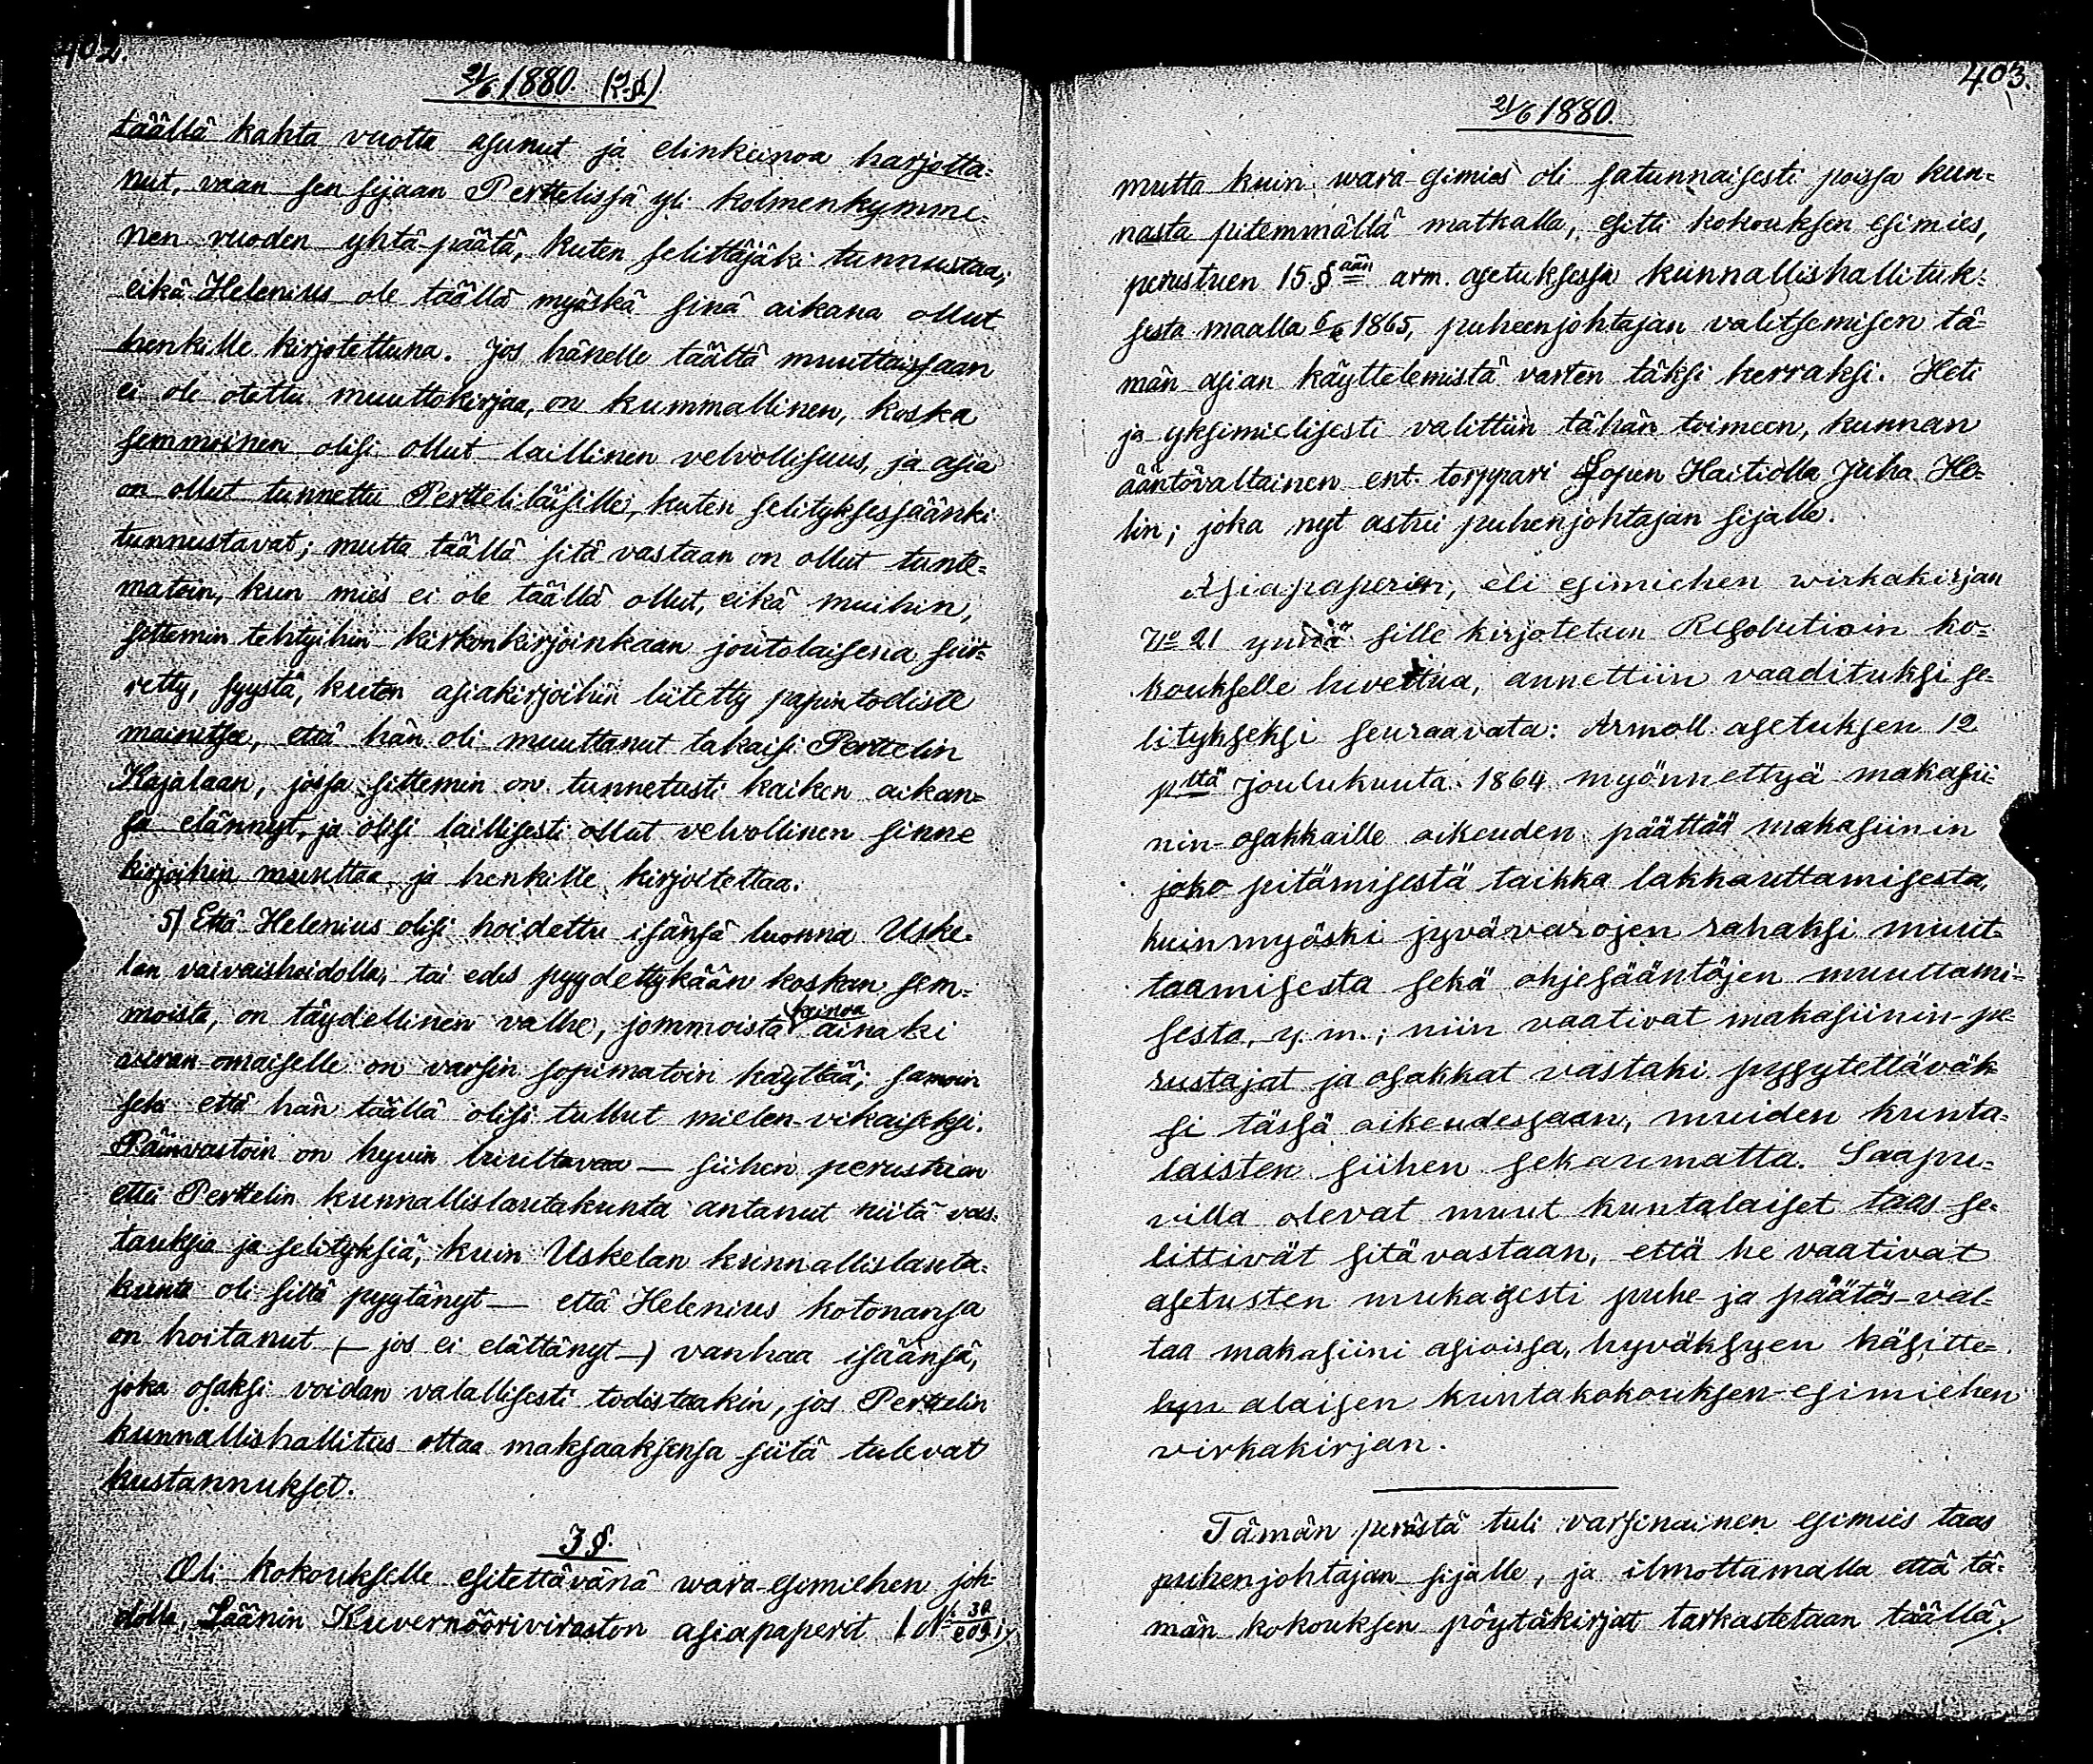 402.
21/6 1880. (2 §.)
täällä kahta vuotta asunut ja elinkeinoa harjotta-
nut, vaan sen sijaan Perttelissä yli kolmenkymme-
nen vuoden yhtä-päätä, kuten selittäjäki tunnustaa;
eikä Helenius ole täällä myöskä sinä aikana ollut
henkille kirjotettuna. Jos hänelle täältä muuttaissaan
ei ole otettu muuttokirjaa, on kummallinen, koska
semmoinen olisi ollut laillinen velvollisuus, ja asia
on ollut tunnettu Perttelilaisille, kuten selityksessäänki
tunnustavat; mutta täällä sitä vastaan on ollut tunte-
matoin, kun mies ei ole täällä ollut, eikä muihin,
sittemin tehtyihin kirkonkirjoinkaan joutolaisena siir-
retty, syystä, kuten asiakirjoihin liitetty papintodiste
mainitsee, että hän oli muuttanut takaisi Perttelin
Kajalaan, jossa sittemin on tunnetusti kaiken aikan-
sa elännyt, ja olisi laillisesti ollut velvollinen sinne
kirjoihin muuttaa ja henkille kirjoitettaa.
5) Että Helenius olisi hoidettu isänsä luonna Uske-
lan vaivaishoidolla, tai edes pyydettykään koskan sem-
moista, on täydellinen valhe, jommoista ainaki
avran-omaiselle on varsin sopimatoin käyttää; samoin
seki että hän täällä olisi tullut mielen-vikaiseksi.
Päinvastoin on hyvin luultavaa — siihen perustain
ettei Perttelin kunnallislautakunta antanut niitä vas-
tauksia ja selityksiä, kuin Uskelan kunnallislauta-
kunta oli siltä pyytänyt — että Helenius kotonansa
on hoitanut (— jos ei elättänyt —) vanhaa isäänsä,
joka osaksi voidan valallisesti todistaakin, jos Perttelin
kunnallishallitus ottaa maksaaksensa siitä tulevat
kustannukset.
3 §.
Oli kokoukselle esitettävänä wara-esimiehen joh-
dolla, Läänin Kuvernöörivirastön asiapaperit
403.
21/6 1880.
mutta kuin wara-esimies oli satunnaisesti poissa kun-
nasta pitemmällä matkalla, esitti kokouksen esimies,
perustuen 15 §ään arm. asetuksessa kunnallishallituk-
sesta maalla 6/2 1865, puheenjohtajan valitsemisen tä-
män asian käyttelemistä varten täksi kerraksi. Heti
ja yksimielisesti valittiin tähän toimeen, kunnan
ääntövaltainen ent. torppari Sopen Haitiolla Juha He-
lin; joka nyt astui puhenjohtajan sijalle.
Asiapaperien, eli esimiehen wirkakirjan
No 21 ynnä sille kirjotetun Resolutioin ko-
koukselle luvettua, annettiin vaadituksi se-
litykseksi seuraavata: Armoll. asetuksen 12
pstä Joulukuuta 1864 myönnettyä makasii-
nin-osakkaille oikeuden päättää makasiinin
joko pitämisestä taikka lakkauttamisesta,
kuin myöski jyvävarojen rahaksi muut-
taamisesta sekä ohjesääntöjen muuttami-
sesta, y. m.; niin vaativat makasiinin-pe-
rustajat ja osakkat vastaki pysytettäväk-
si tässä oikeudessaan, muiden kunta-
laisten siihen sekaumatta. Saapu-
villa olevat muut kuntalaiset taas se-
littivät sitävastaan, että he vaativat
asetusten mukaisesti puhe- ja päätös-val-
taa makasiini asioissa, hyväksyen käsitte-
lyn alaisen kuntakokouksen-esimiehen
virkakirjan.
Tämän perästä tuli varsinainen esimies taas
puhenjohtajan sijalle, ja ilmottamalla että tä-
män kokouksen pöytäkirjat tarkastetaan täällä